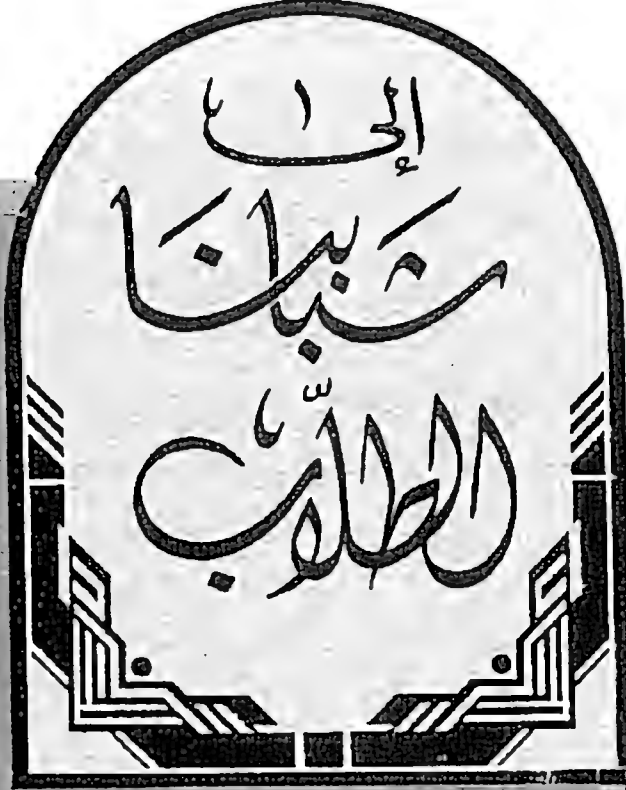 إلى
شَبَابِنَا
الطلّاب